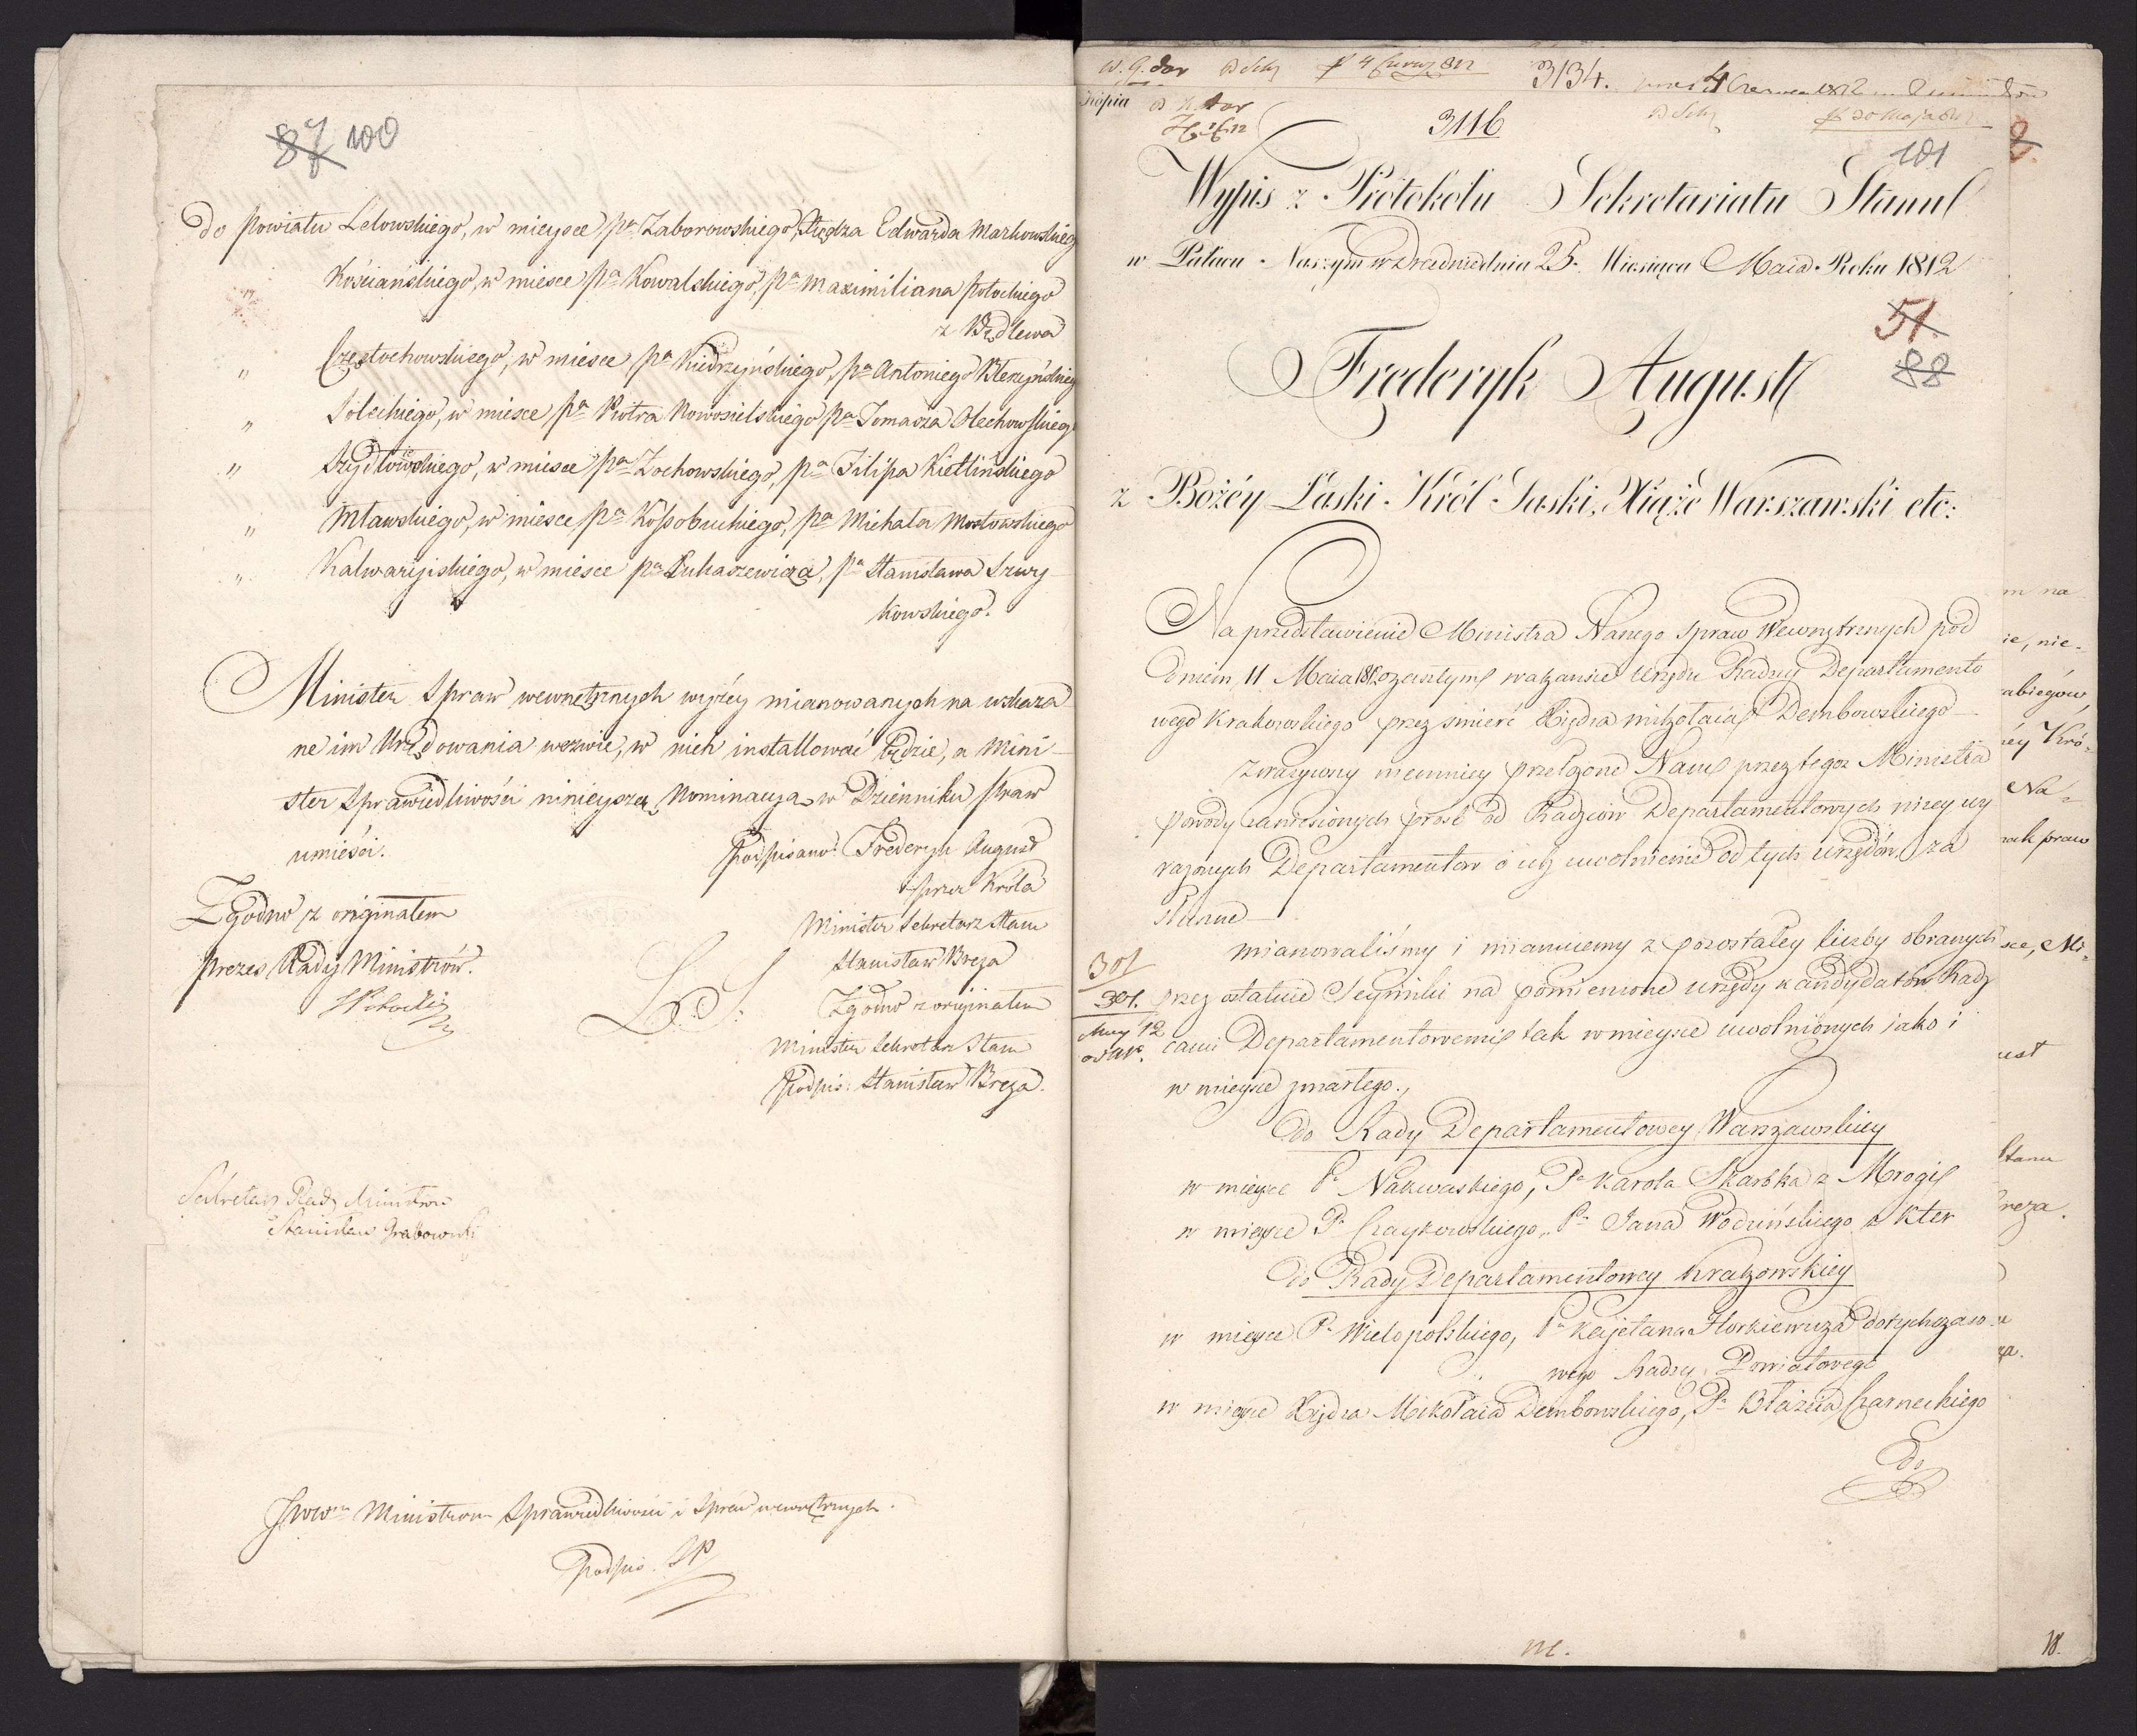 87 100
do Powiatu Lelowskiego, w mieysce Pa Zaborowskiego, Xiędza Edwarda Markowskieg
Kościańskiego, w miesce Pa Kowalskiego, Pa Maximiliana Potockiego
z Będlewa
" Częstochowskiego, w miesce Pa Kiedrzyńskiego, Pa Antoniego Błeszyńskieg
" Soleckiego, w miesce Pa Piotra Nowosielskiego Pa Tomasza Olechowskieg
" Szydłowskiego, w miesce Pa Żochowskiego, Pa Filipa Kietlińskiego
" Mławskiego, w miesce Pa Kossobuckiego, Pa Michała Mostowskiego
" Kalwaryiskiego, w miesce Pa Łukaszewicza, Pa Stanisława Szwy-
kowskiego.
Minister Spraw wewnętrznych wyżéy mianowanych na wskaza-
ne im Urzędowania wezwie, w nich installować będzie, a Mini-
ster Sprawiedliwości ninieyszą Nominacyą w Dzienniku praw
umieści. Podpisano: Frederyk August
przez Króla
Zgodno z originałem
Minister Sekretarz Stanu
Prezes Rady Ministrów.
Stanisław Breza
L. S.
Zgodno z originałem
Minister Sekretarz Stanu
Podpis: Stanisław Breza.
Sekretarz Rady Ministrów
Stanisław Grabowski
Ministrom Sprawiedliwości i Spraw wewnętrznych.
Podpis. SP
3134.
Kopia
3116
101
Wypis z Protokołu Sekretariatu Stanu
w Pałacu Naszym w Dreźnie dnia 25. Miesiąca Maia Roku 1812
51.
88
Fryderyk August
z Bożéy Łaski Król Saski, Xiąże Warszawski etc:
Na przedstawienie Ministra Naszego Spraw Wewnętrznych pod
dniem 11 Maia 1812 o zaszłym wakansie Urzędu Radzcy Departamento
wego Krakowskiego przez śmierć Xiędza Mikołaia Dembowskiego
Zważywszy niemniey przełożone Nam przez tegoż Ministra
powody zaniesionych próśb od Radzców Departamentowych niżey wy
rażonych Departamentów o ich uwolnienie od tych urzędów, za
słuszne
mianowaliśmy i mianuiemy z pozostałey liczby obranych
301
301.
przez ostatnie Seymiki na pomienione urzędy kandydatów Radz
cami Departamentowemi tak w mieysce uwolnionych iako i
w mieysce zmarłego.
do Rady Departamentowey Warszawskiey
w mieysce Pa Nakwaskiego, Pa Karola Skarbka z Mrogi
w mieysce Pa Czaykowskiego, Pa Jana Wodzińskiego z Kter
do Rady Departamentowey Krakowskiey
w mieysce Pa Wielopolskiego, Pa Kajetana Florkiewicza dotychczaso
wego Radzcę Powiatowego
w mieysce Xiędza Mikołaia Dembowskiego, Pa Błażeia Czarneckiego
Do
m na
ie, nie-
abiegów,
éy Kró-
Na-
rak praw
sce, Mi-
ust
Stanu
reza.
18.